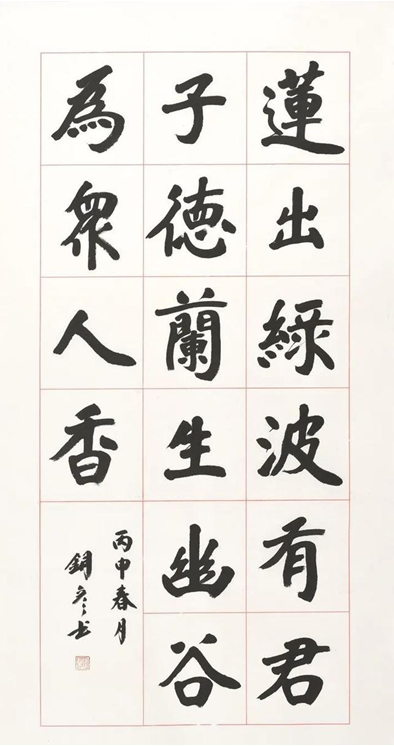 蓮出綠波有君
子德蘭生幽谷
為衆人香
丙申春月
書